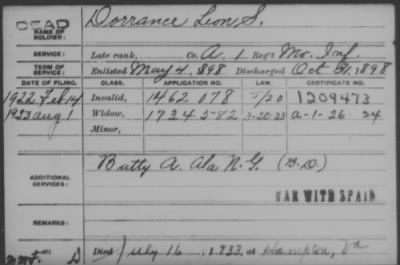 DEAD
NAME OF SOLDIER: Dorrance Leon S.
SERVICE: Late rank, Co. A. 1 Reg't Mo. Inf.
TERM OF SERVICE: Enlisted May 4. 1898 Discharged Oct 31, 1898
DATE OF FILING. CLASS. APPLICATION NO. LAW. CERTIFICATE NO.
1922 Feb 14 Invalid, 1462078 1209473
1933 Aug 1 Widow, 1734582 3-20-33 A-1-26-34
Minor,
ADDITIONAL SERVICES: Batty A. Ala N.G. (B.D.)
WAR WITH SPAIN
REMARKS:
Died July 16, 1933, at Hampton, Va